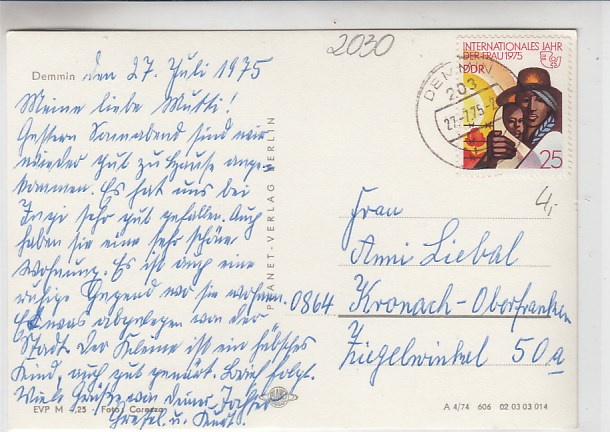 2030
INTERNATIONALES JAHR
DER FRAU 1975
DDR
25
DEMMIN
203
27.-7.75-
Demmin den 27. Juli 1975
Meine liebe Mutti!
Gestern Sonnabend sind wir
wieder gut zu Hause ange-
kommen. Es hat uns bei
sehr gut gefallen. Auch
haben sie eine sehr schöne
Wohnung. Es ist auch eine
ruhige Gegend wo sie wohnen.
Etwas abgelegen von der
Stadt. Der Kleine ist ein hübsches
Kind, auch gut genährt. Brief folgt.
Viele Grüße von deiner Tochter
Gretel u.
PLANET-VERLAG BERLIN
4,-
Frau
Anni Liebal
0864 Kronach-Oberfranken
Ziegelwinkel 50a
EVP M -,25 Foto: Corazza
A 4/74 606 02 03 03 014